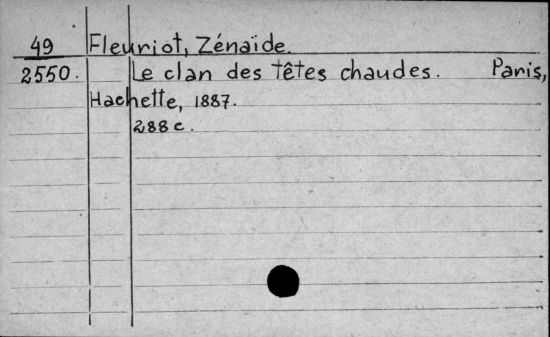 49 Fleuriot, Zénaïde.
2550. Le clan des têtes chaudes. Paris,
Hachette, 1887.
288 c.